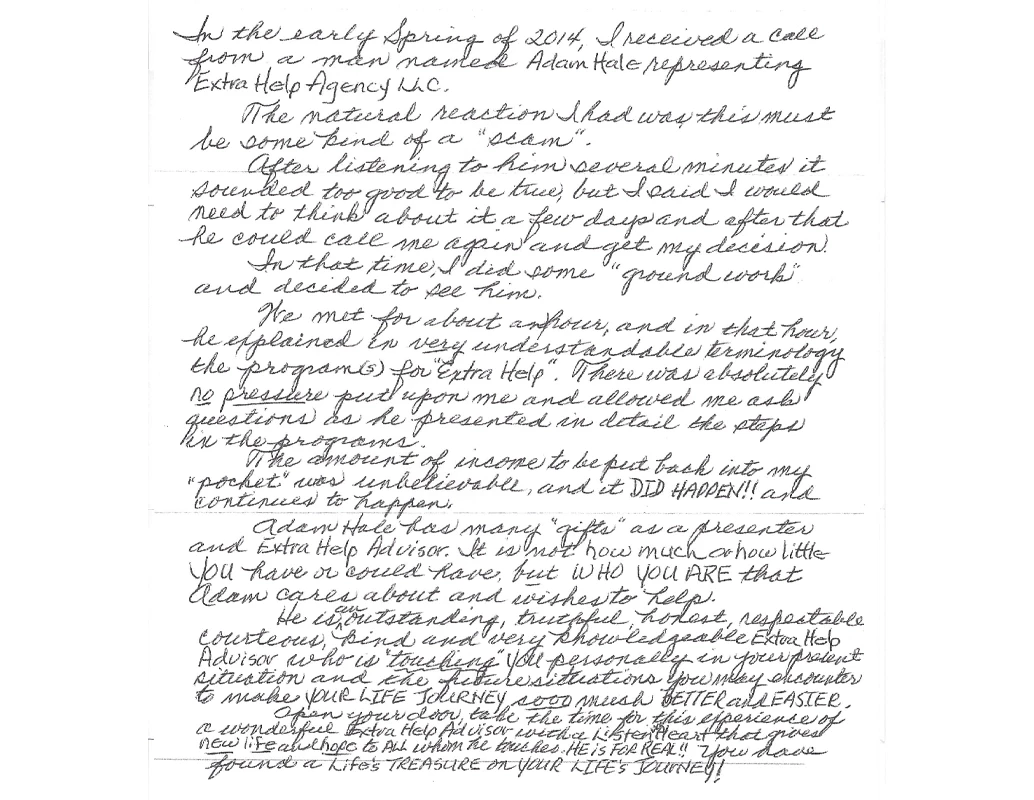 In the early Spring of 2014, I received a call
from a man named Adam Hale, representing
Extra Help Agency LLC.
The natural reaction I had was, this must
be some kind of a "scam".
After listening to him several minutes it
sounded too good to be true, but I said I would
need to think about it a few days and after that
he could call me again and get my decision.
In that time, I did some "ground work"
and decided to see him.
We met for about an hour, and in that hour,
he explained in very understandable terminology
the program(s) for "Extra Help". There was absolutely
no pressure put upon me and allowed me ask
questions as he presented in detail the steps
in the programs.
The amount of income to be put back into my
"pocket" was unbelievable, and it DID HAPPEN!! and
continues to happen.
Adam Hale has many "gifts" as a presenter
and Extra Help Advisor. It is not how much or how little
YOU have or could have, but WHO YOU ARE that
Adam cares about and wishes to help.
He is an outstanding, truthful, honest, respectable
courteous, kind and very knowledgeable Extra Help
Advisor who is "touching" YOU personally in your present
situation and the future situations you may encounter
to make YOUR LIFE JOURNEY sooo much BETTER and EASIER.
Open your door, take the time for this experience of
a wonderful Extra Help Advisor with a Listen Heart that gives
new life and hope to ALL whom he touches. HE IS FOR REAL!! You have
found a Life's TREASURE on YOUR LIFE'S JOURNEY!